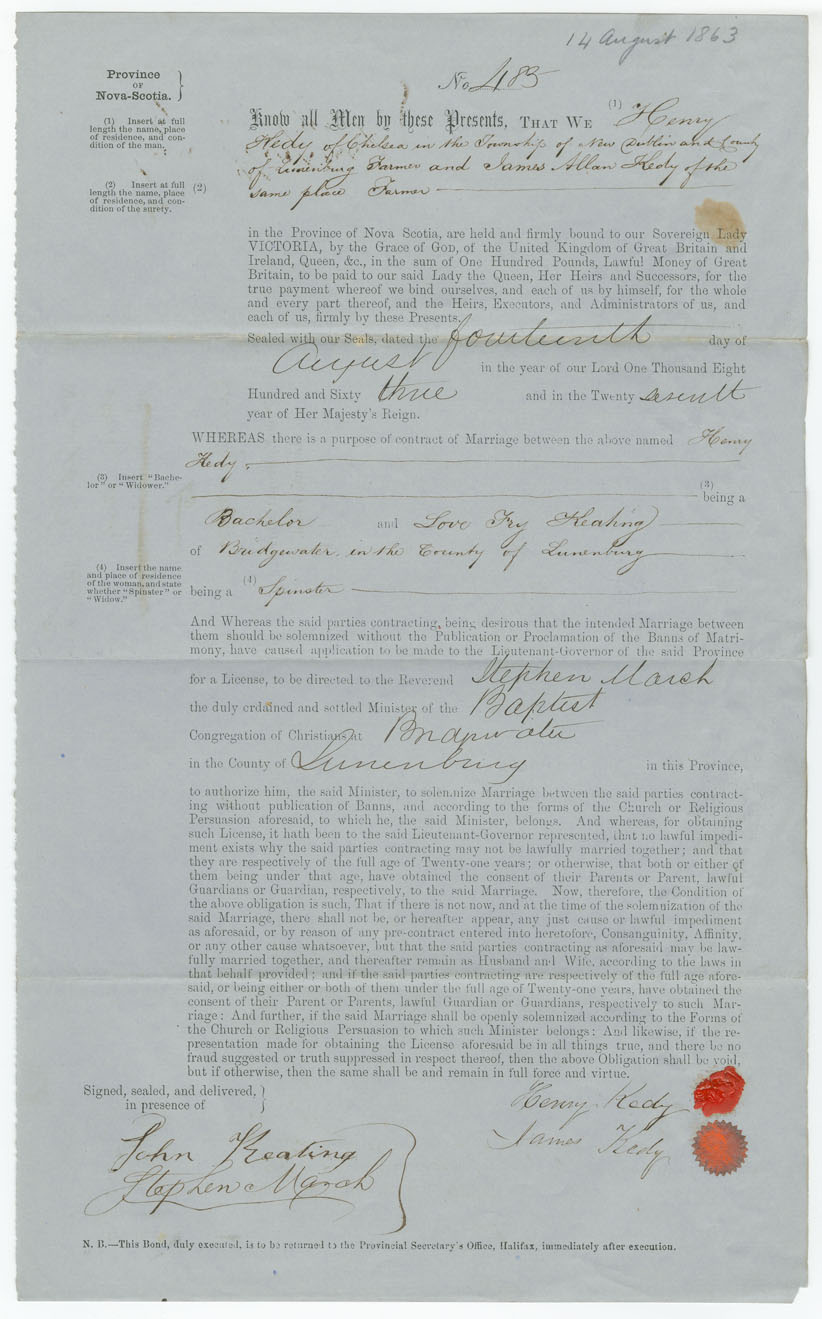 14 August 1863
Province
OF
Nova-Scotia.
No 483
(1) Insert at full
length the name, place
of residence, and con-
dition of the man.
Know all Men by these Presents, THAT WE (1) Henry
Kedy of Chelsea in the Township of New Dublin and County
of Lunenburg Farmer and James Allan Kedy of the
(2) Insert at full
length the name, place
of residence, and con-
dition of the surety.
(2) same place Farmer
in the Province of Nova Scotia, are held and firmly bound to our Sovereign Lady
VICTORIA, by the Grace of GOD, of the United Kingdom of Great Britain and
Ireland, Queen, &c., in the sum of One Hundred Pounds, Lawful Money of Great
Britain, to be paid to our said Lady the Queen, Her Heirs and Successors, for the
true payment whereof we bind ourselves, and each of us by himself, for the whole
and every part thereof, and the Heirs, Executors, and Administrators of us, and
each of us, firmly by these Presents.
Sealed with our Seals, dated the fourteenth day of
August in the year of our Lord One Thousand Eight
Hundred and Sixty three and in the Twenty seventh
year of Her Majesty's Reign.
WHEREAS there is a purpose of contract of Marriage between the above named Henry
Kedy.
(3) Insert "Bache-
lor" or "Widower."
(3) being a
Bachelor and Love Fry Keating
of Bridgewater in the County of Lunenburg
(4) Insert the name
and place of residence
of the woman, and state
whether "Spinster" or
"Widow."
being a (4) Spinster
And Whereas the said parties contracting, being desirous that the intended Marriage between
them should be solemnized without the Publication or Proclamation of the Banns of Matri-
mony, have caused application to be made to the Lieutenant-Governor of the said Province
for a License, to be directed to the Reverend Stephen March
the duly ordained and settled Minister of the Baptist
Congregation of Christians at Bridgwater
in the County of Lunenburg in this Province,
to authorize him, the said Minister, to solemnize Marriage between the said parties contract-
ing without publication of Banns, and according to the forms of the Church or Religious
Persuasion aforesaid, to which he, the said Minister, belongs. And whereas, for obtaining
such License, it hath been to the said Lieutenant-Governor represented, that no lawful impedi-
ment exists why the said parties contracting may not be lawfully married together; and that
they are respectively of the full age of Twenty-one years; or otherwise, that both or either of
them being under that age, have obtained the consent of their Parents or Parent, lawful
Guardians or Guardian, respectively, to the said Marriage. Now, therefore, the Condition of
the above obligation is such, That if there is not now, and at the time of the solemnization of the
said Marriage, there shall not be, or hereafter appear, any just cause or lawful impediment
as aforesaid, or by reason of any pre-contract entered into heretofore, Consanguinity, Affinity,
or any other cause whatsoever, but that the said parties contracting as aforesaid may be law-
fully married together, and thereafter remain as Husband and Wife, according to the laws in
that behalf provided; and if the said parties contracting are respectively of the full age afore-
said, or being either or both of them under the full age of Twenty-one years, have obtained the
consent of their Parent or Parents, lawful Guardian or Guardians, respectively to such Mar-
riage: And further, if the said Marriage shall be openly solemnized according to the Forms of
the Church or Religious Persuasion to which such Minister belongs: And likewise, if the re-
presentation made for obtaining the License aforesaid be in all things true, and there be no
fraud suggested or truth suppressed in respect thereof, then the above Obligation shall be void,
but if otherwise, then the same shall be and remain in full force and virtue.
Signed, sealed, and delivered,
in presence of
Henry Kedy
James Kedy
John Keating
Stephen March
N. B.—This Bond, duly executed, is to be returned to the Provincial Secretary's Office, Halifax, immediately after execution.